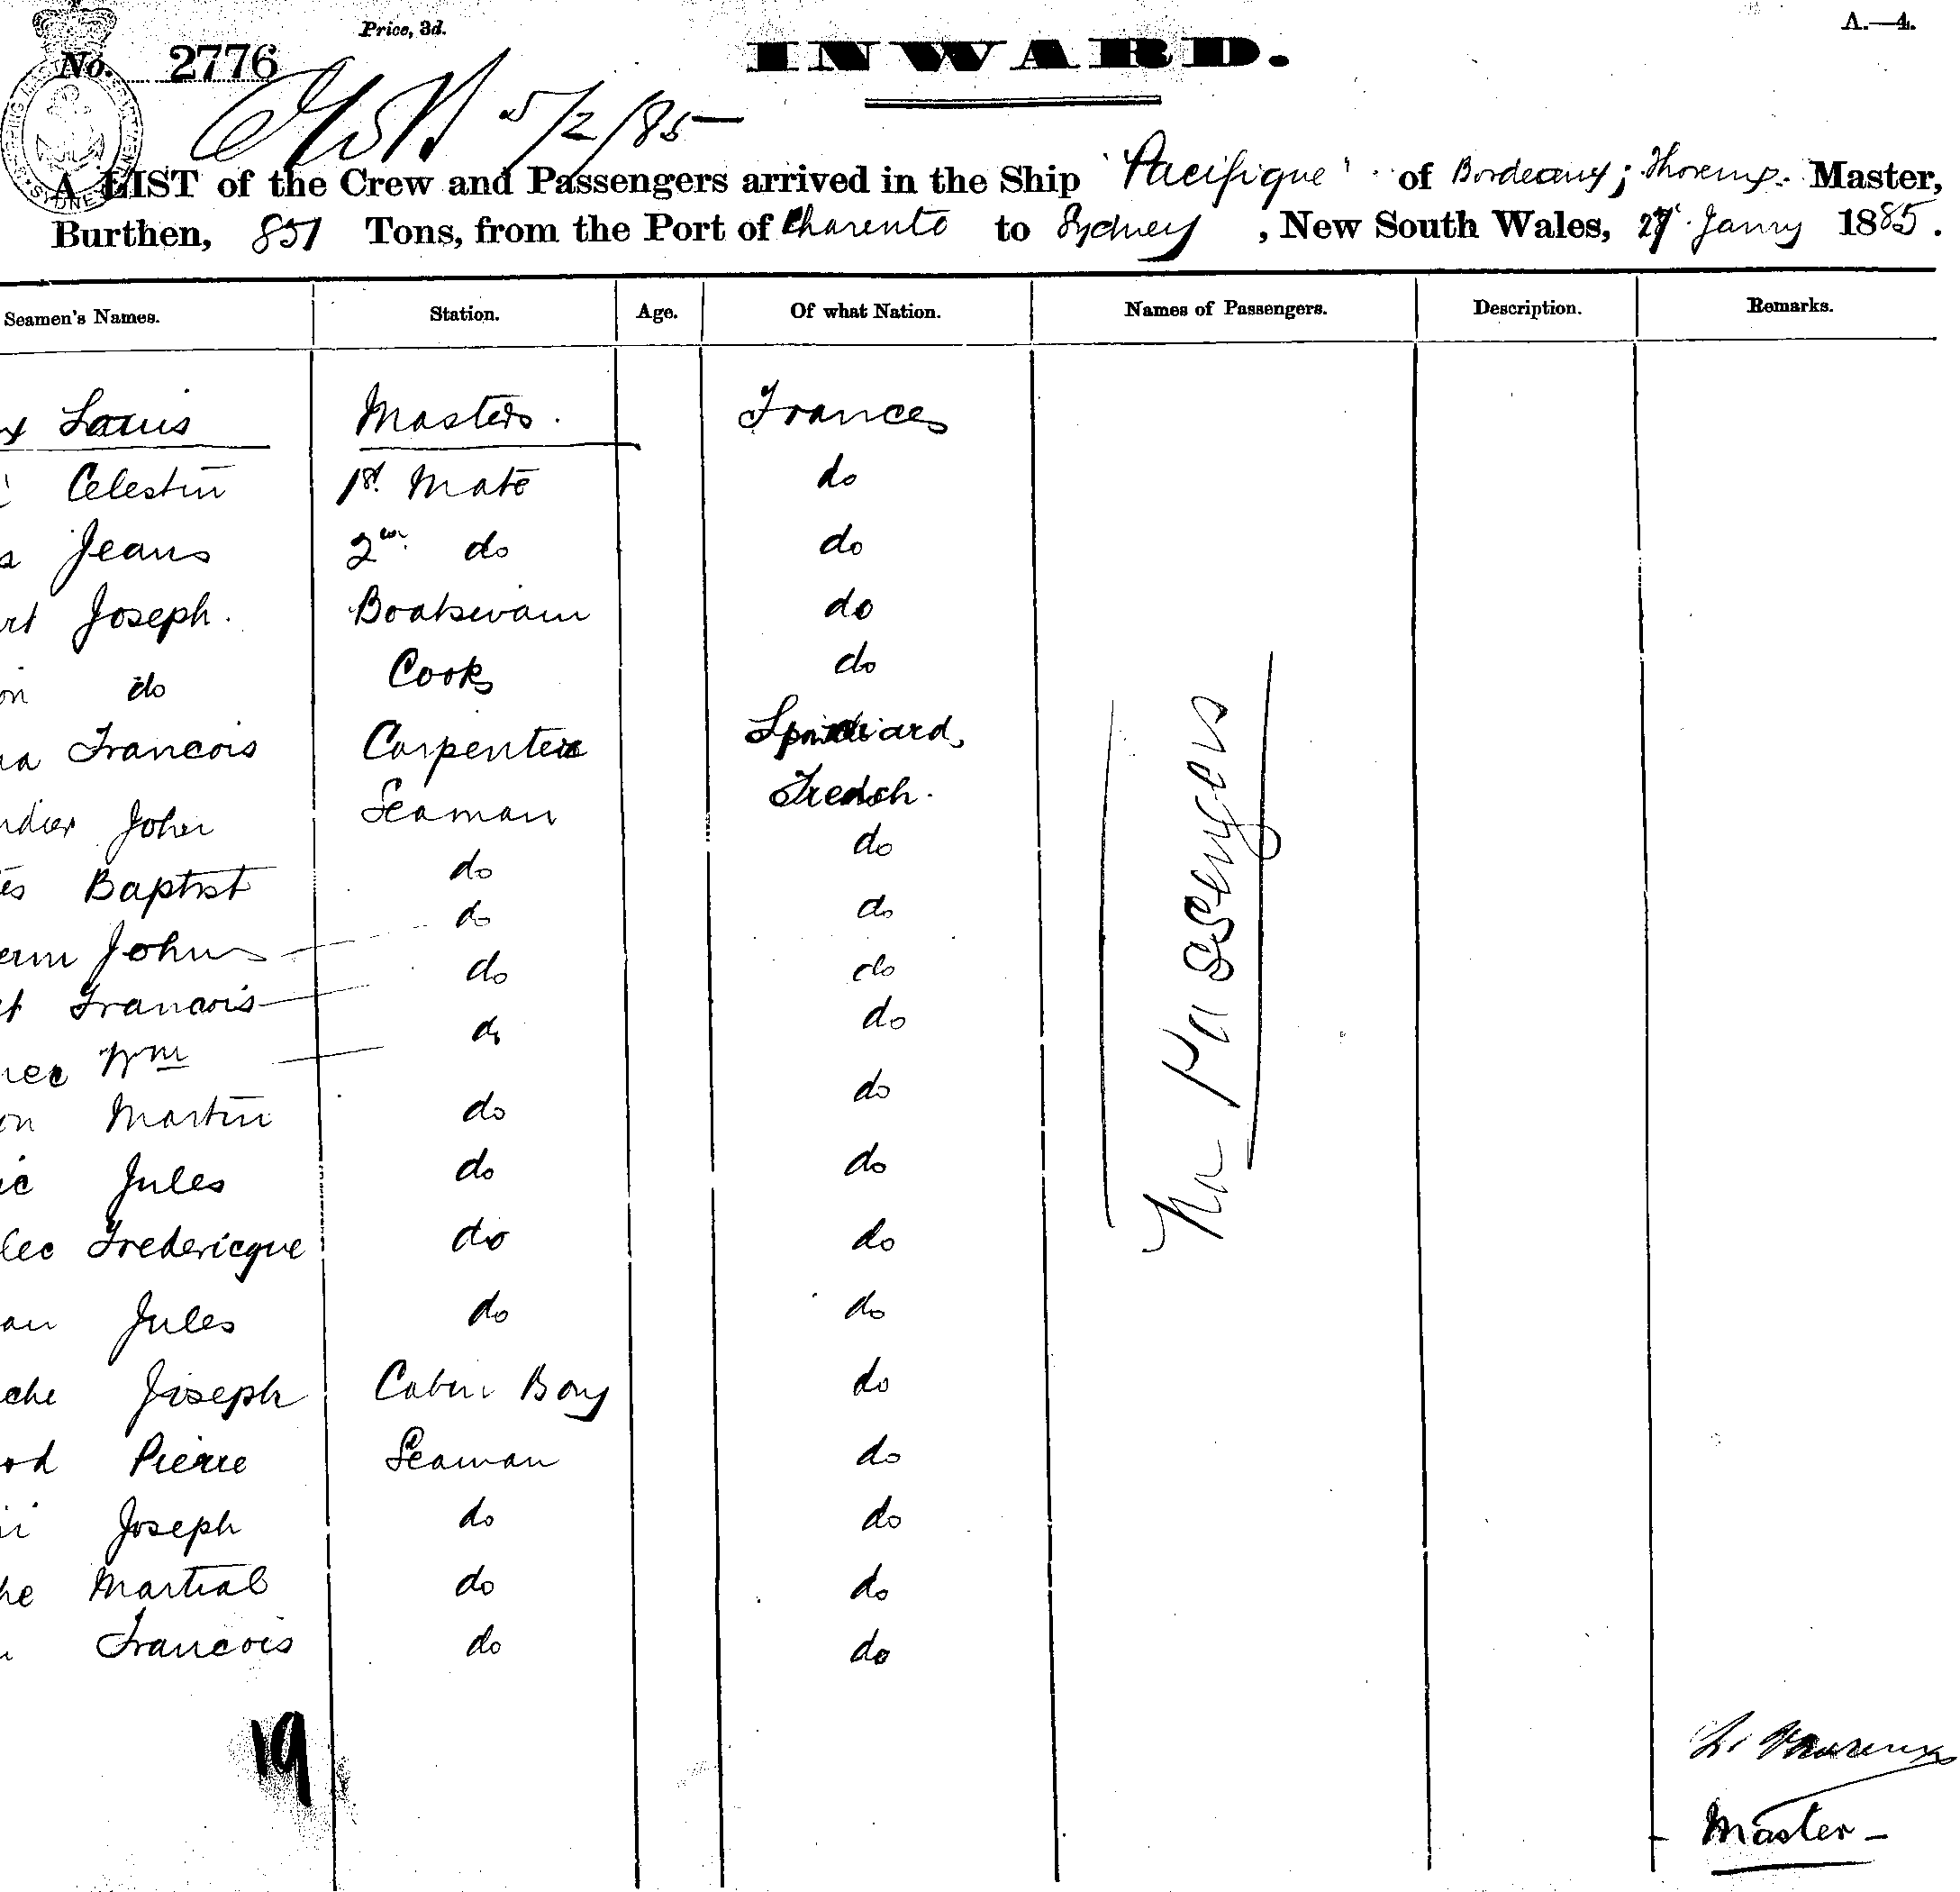 Price, 3d.
A.—4.
No. 2776
INWARD.
5/2/85
A LIST of the Crew and Passengers arrived in the Ship 'Pacifique' of Bordeaux; Thoreux. Master,
Burthen, 851 Tons, from the Port of Charente to Sydney, New South Wales, 27 Janry 1885.
Seamen's Names. Station. Age. Of what Nation. Names of Passengers. Description. Remarks.
x Louis Master. France
Celestin 1st. Mate do
Jean 2nd. do do
rt Joseph. Boatswain do
on do Cook do
na Francois Carpenter Spaniard
ndier John Seaman French.
es Baptist do do
erm John do do
t Francois do do
nec Wm do do
on Martin do do
ic Jules do do
lec Fredericque do do
an Jules do do
che Joseph Cabin Boy do
od Pierre Seaman do
Joseph do do
he Martial do do
Francois do do
No Passengers
19
L. Thoreux
Master